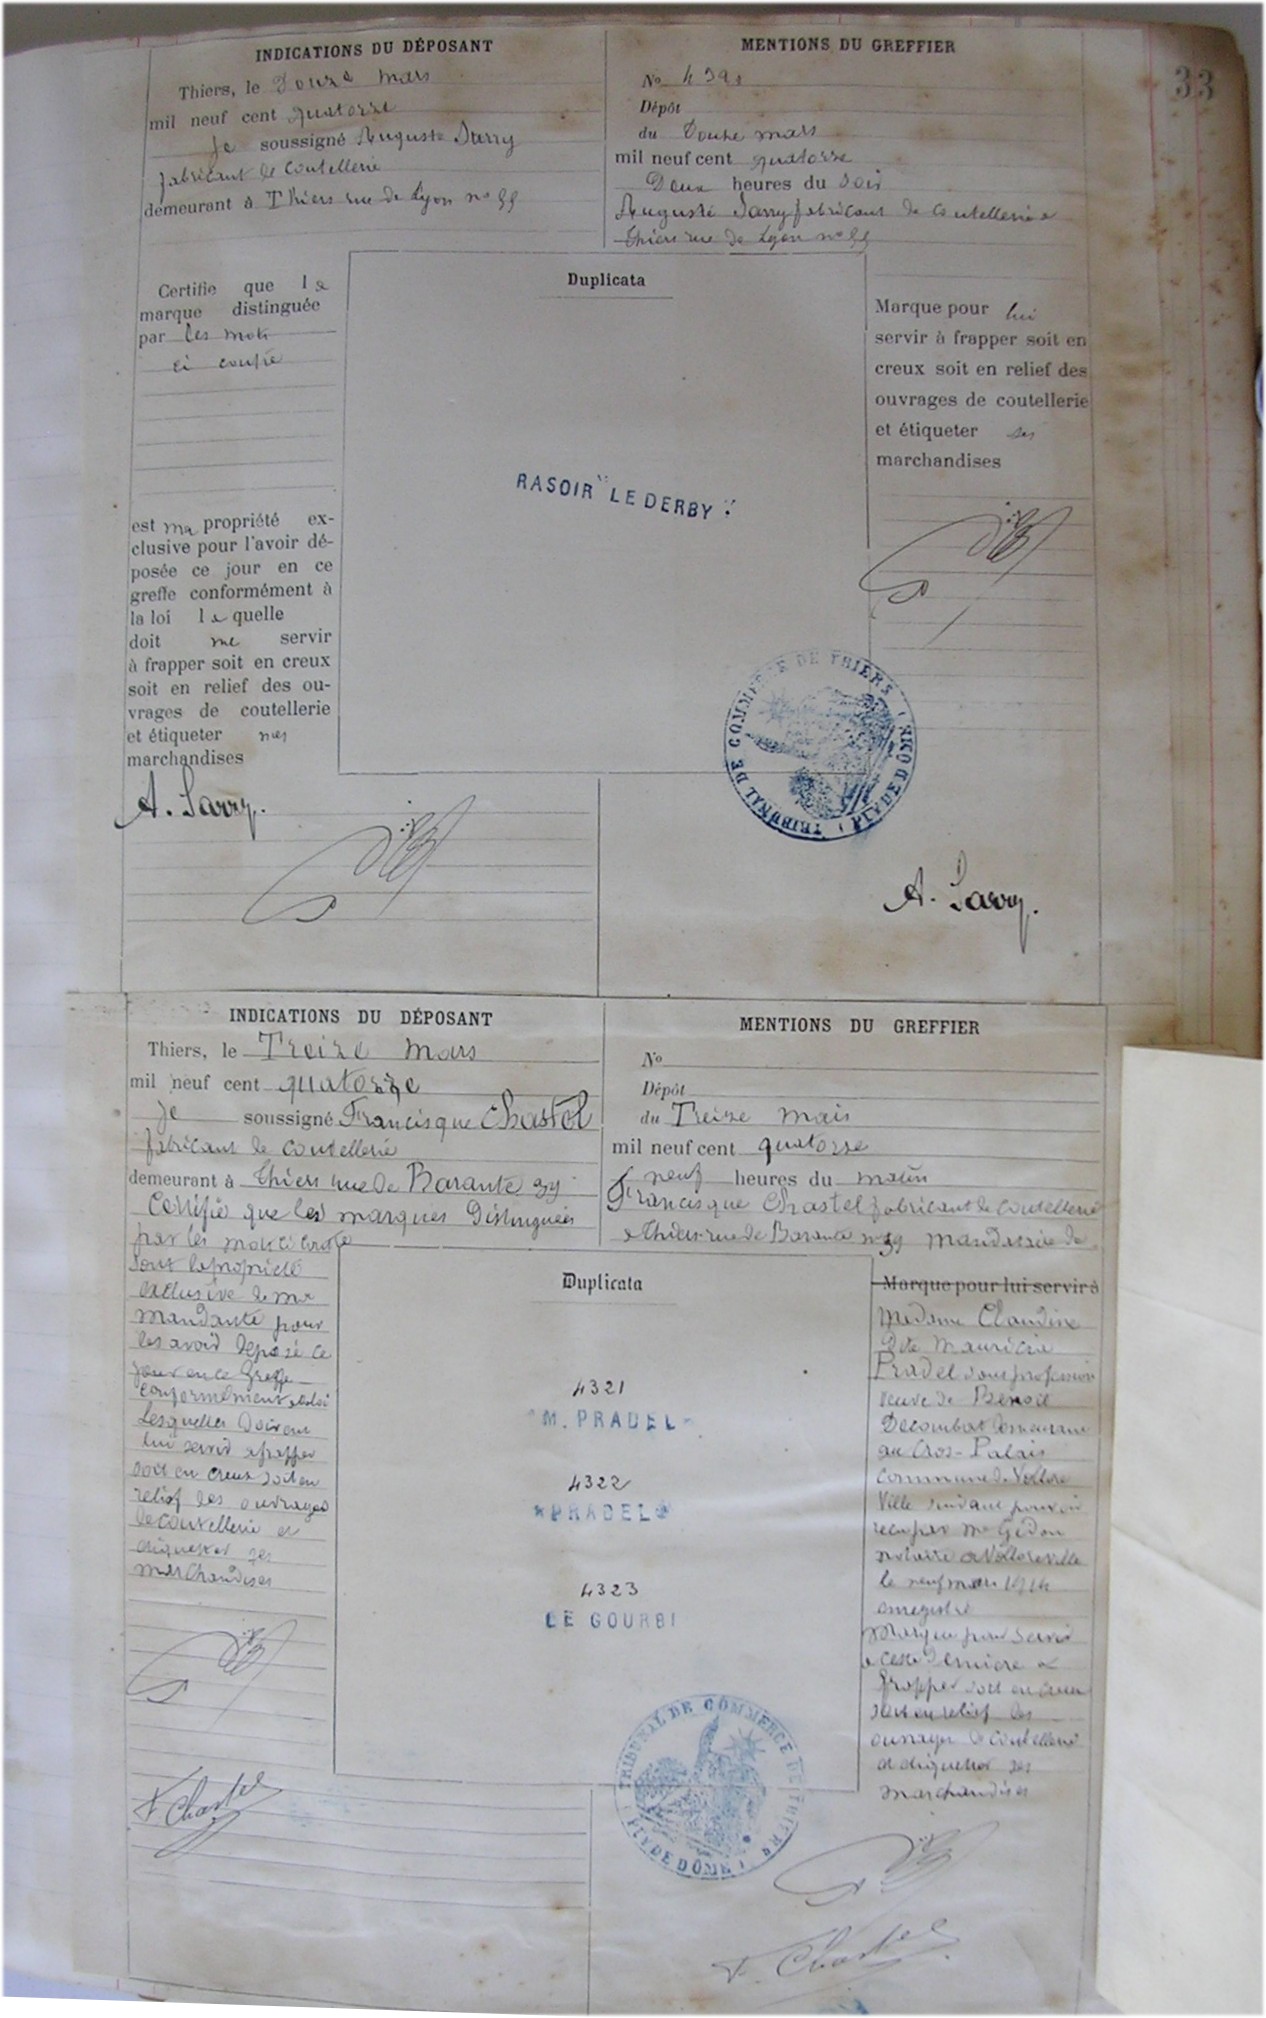 33
INDICATIONS DU DÉPOSANT
Thiers, le Douze mars
mil neuf cent quatorze
Je soussigné Auguste Sarry
fabricant de coutellerie
demeurant à Thiers rue de Lyon no
Certifie que la
marque distinguée
par les mots
ci contre
est ma propriété ex-
clusive pour l'avoir dé-
posée ce jour en ce
greffe conformément à
la loi laquelle
doit me servir
à frapper soit en creux
soit en relief des ou-
vrages de coutellerie
et étiqueter mes
marchandises
A. Sarry.
MENTIONS DU GREFFIER
No
Dépôt
du Douze mars
mil neuf cent quatorze
Deux heures du soir
Auguste Sarry fabricant de coutellerie a
Thiers rue de Lyon no
Duplicata
RASOIR "LE DERBY"
Marque pour lui
servir à frapper soit en
creux soit en relief des
ouvrages de coutellerie
et étiqueter ses
marchandises
TRIBUNAL DE COMMERCE DE THIERS (PUY DE DOME)
A. Sarry.
INDICATIONS DU DÉPOSANT
Thiers, le Treize mars
mil neuf cent quatorze
Je soussigné Francisque Chastel
fabricant de coutellerie
demeurant à Thiers rue de Barante 39
Certifie que les marques distinguées
par les mots ci contre
sont la propriété
exclusive de ma
mandante pour
les avoir déposé ce
jour en ce Greffe
conformément a la loi
Lesquelles doivent
lui servir a frapper
soit en creux soit en
relief des ouvrages
de coutellerie et
étiqueter ses
marchandises
F. Chastel
MENTIONS DU GREFFIER
No
Dépôt
du Treize mars
mil neuf cent quatorze
neuf heures du matin
Francisque Chastel fabricant de coutellerie
a Thiers rue de Barante no 39 mandataire de
Duplicata
4321
"M. PRADEL"
4322
*PRADEL*
4323
LE GOURBI
Marque pour lui servir à
Madame Claudine
dite Mauricia
Pradel sans profession
veuve de Benoit
Decombat demeurant
au Cros-Palais
commune de Vollore
Ville suivant pouvoir
reçu par Me Gidon
notaire a Vollore ville
le neuf mars 1914
enregistré
Marque pour servir
a cette dernière a
frapper soit en creux
soit en relief des
ouvrages de coutellerie
et étiqueter ses
marchandises
TRIBUNAL DE COMMERCE DE THIERS (PUY DE DOME)
F. Chastel